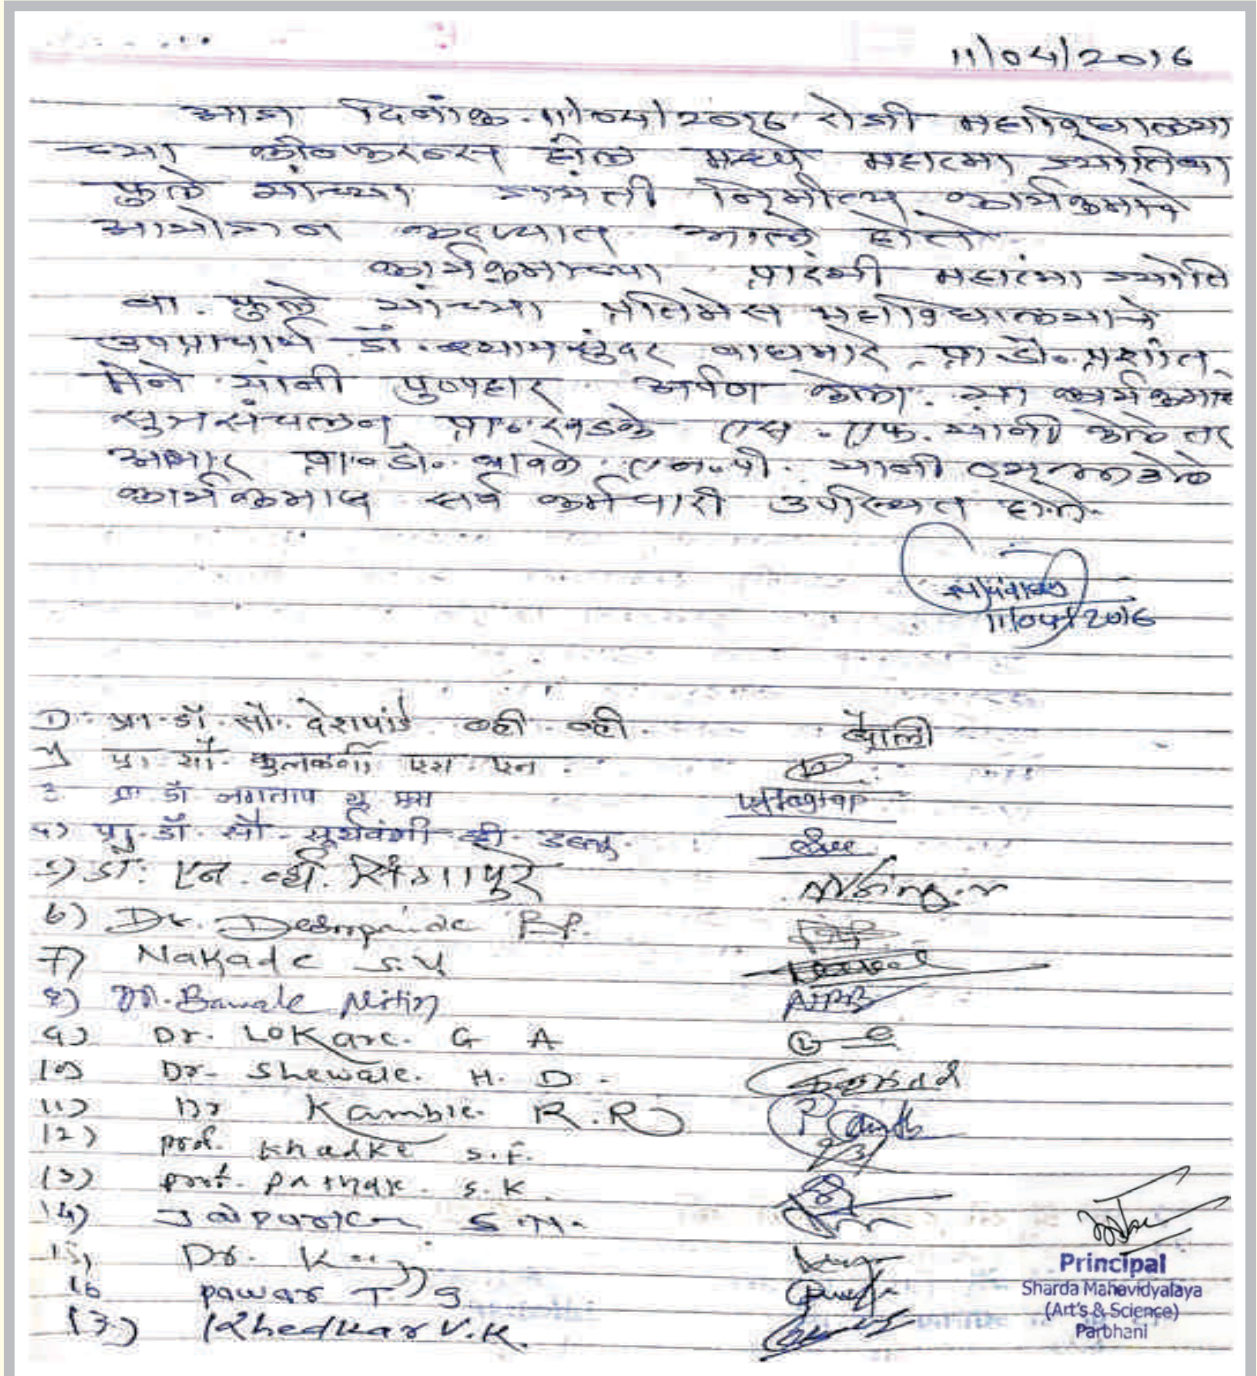 11/04/2016
आज दिनांक 11/04/2016 रोजी महाविद्यालया
च्या कॉन्फरन्स हॉल मध्ये महात्मा ज्योतिबा
फुले यांच्या जयंती निमीत्य कार्यक्रमाचे
आयोजन करण्यात आले होते.
कार्यक्रमाच्या प्रारंभी महात्मा ज्योति
बा. फुले यांच्या प्रतिमेस महाविद्यालयाचे
उपप्राचार्य डॉ. श्यामसुंदर वाघमारे, प्रा.डॉ. प्रशांत
मेने यांनी पुष्पहार अर्पण केला. या कार्यक्रमाचे
सुत्रसंचलन प्रा. खडके एस. एफ. यांनी केले तर
आभार प्रा. डॉ. बावले एन. पी. यांनी व्यक्त केले
कार्यक्रमास सर्व कर्मचारी उपस्थित होते.
11/04/2016
1) प्रा. डॉ. सौ. देशपांडे व्ही. व्ही.
2) प्रा सौ. कुलकर्णी एस एन.
3 प्रा डॉ जगताप यू एम Jagtap
4) प्रा. डॉ. सौ. सूर्यवंशी व्ही. डब्ल्यू.
5) डॉ. एन. व्ही. सिंगापुरे
6) Dr. Deshpande P.P.
7) Nakade S.V
8) Dr. Bawale Nitin NPB
9) Dr. Lokare. G A
10) Dr. Shewale. H. D.
11) Dr Kamble. R. R
12) prof. Khadke S.F.
13) prof. Pathak. S.K.
14) Jaipurkar S.M.
15) Dr.
16 pawar T. G
17) Khedkar V.K.
Principal
Sharda Mahavidyalaya
(Art's & Science)
Parbhani